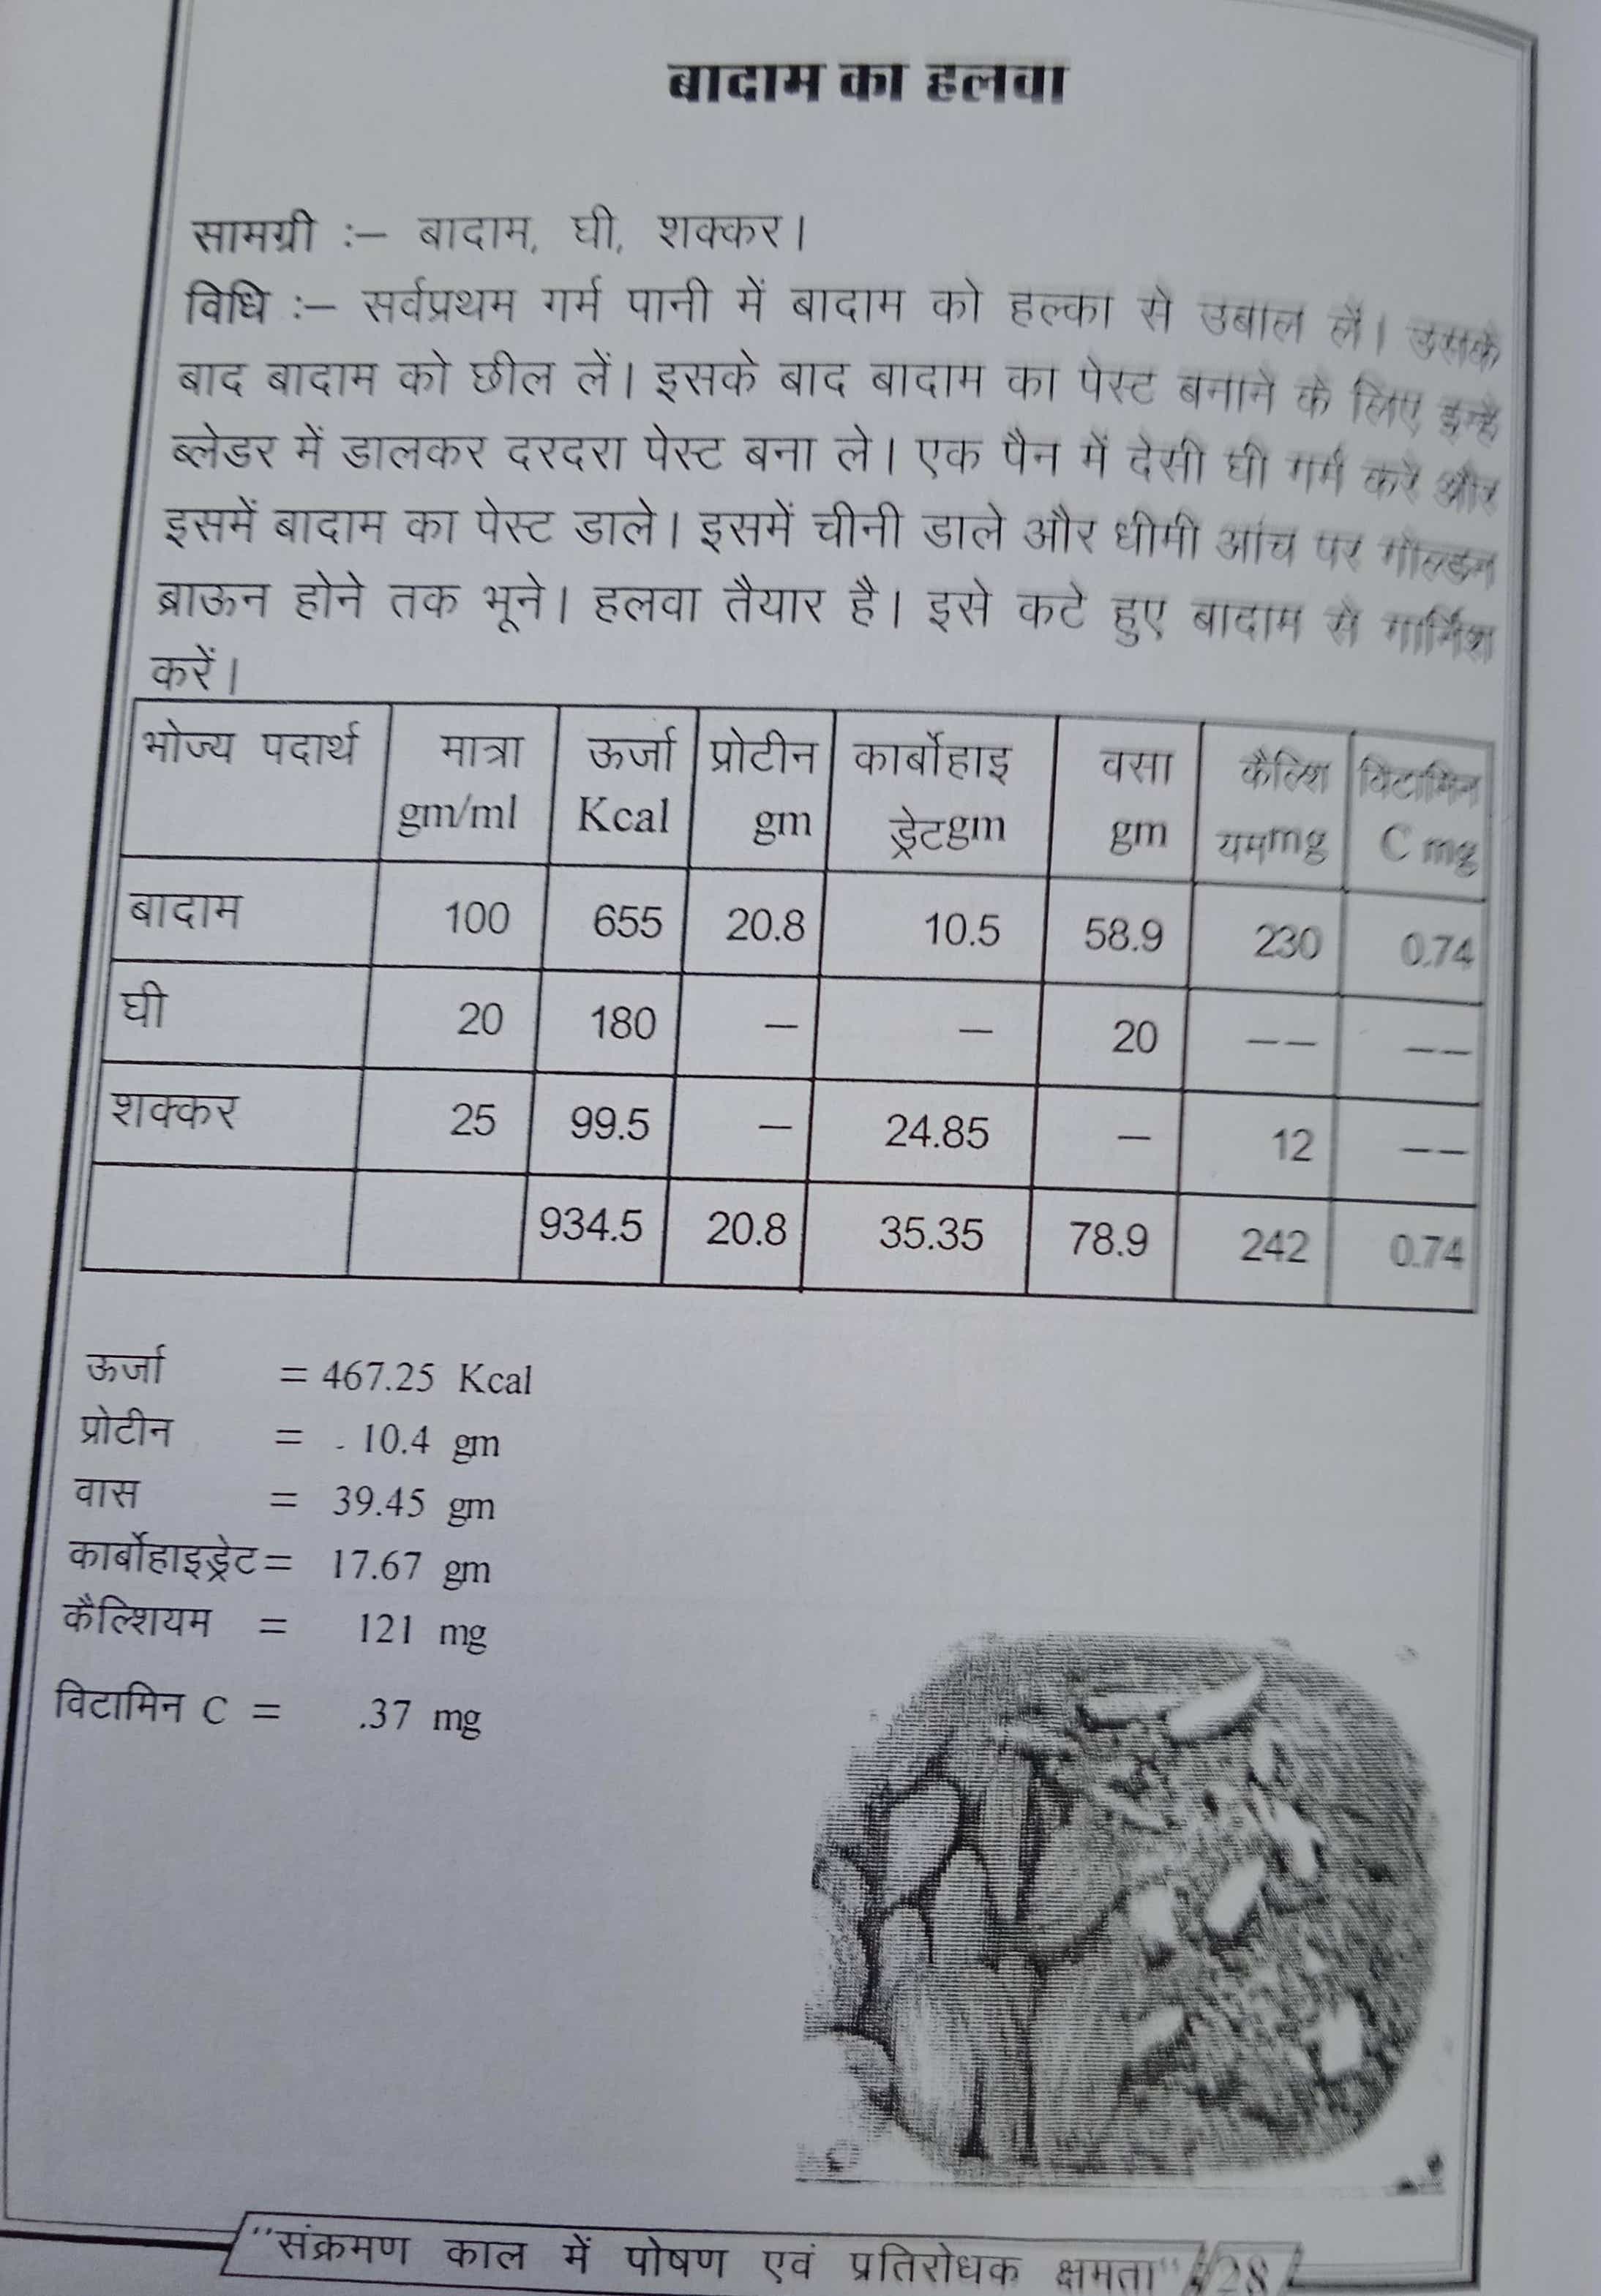 बादाम का हलवा
सामग्री :– बादाम, घी, शक्कर।
विधि :– सर्वप्रथम गर्म पानी में बादाम को हल्का से उबाल लें। उसके
बाद बादाम को छील लें। इसके बाद बादाम का पेस्ट बनाने के लिए इन्हें
ब्लेडर में डालकर दरदरा पेस्ट बना ले। एक पैन में देसी घी गर्म करें और
इसमें बादाम का पेस्ट डाले। इसमें चीनी डाले और धीमी आंच पर गोल्डन
ब्राऊन होने तक भूने। हलवा तैयार है। इसे कटे हुए बादाम से गार्निश
करें।
भोज्य पदार्थ मात्रा ऊर्जा प्रोटीन कार्बोहाइ वसा कैल्शि विटामिन
gm/ml Kcal gm ड्रेटgm gm यमmg C mg
बादाम 100 655 20.8 10.5 58.9 230 0.74
घी 20 180 – – 20 –– ––
शक्कर 25 99.5 – 24.85 – 12 ––
934.5 20.8 35.35 78.9 242 0.74
ऊर्जा = 467.25 Kcal
प्रोटीन = 10.4 gm
वास = 39.45 gm
कार्बोहाइड्रेट= 17.67 gm
कैल्शियम = 121 mg
विटामिन C = .37 mg
"संक्रमण काल में पोषण एवं प्रतिरोधक क्षमता" 28